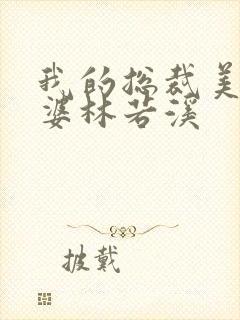 我的总裁美
婆林若溪
披戴